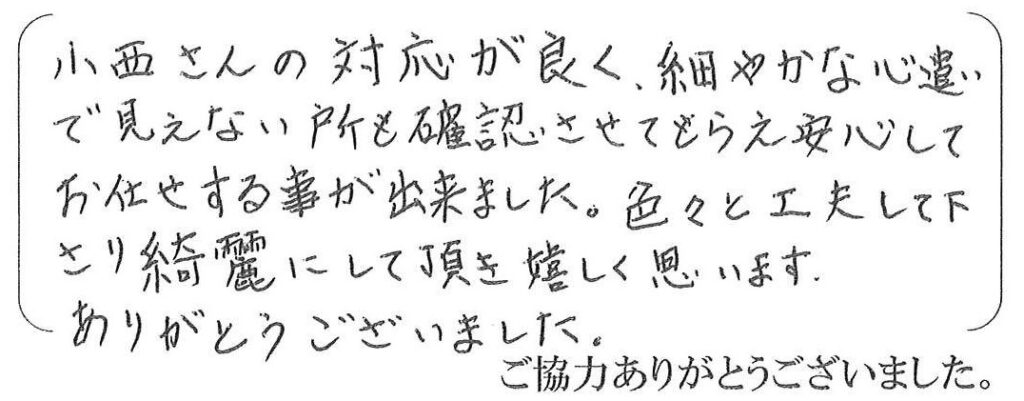 小西さんの対応が良く、細やかな心遣い
で見えない所も確認させてもらえ安心して
お任せする事が出来ました。色々と工夫して下
さり綺麗にして頂き嬉しく思います.
ありがとうございました。
ご協力ありがとうございました。